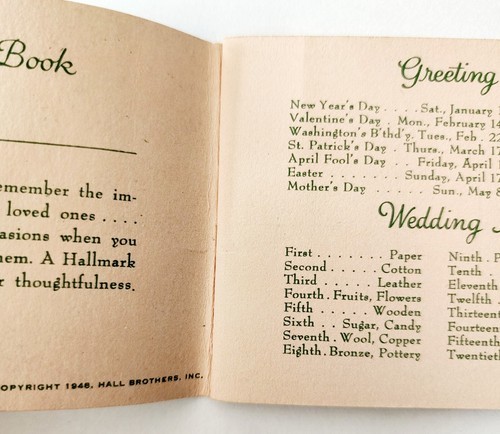 Book
emember the im-
loved ones ....
asions when you
em. A Hallmark
r thoughtfulness.
OPYRIGHT 1948, HALL BROTHERS, INC.
Greeting
New Year's Day . . . . Sat., January 1
Valentine's Day . Mon., February 14
Washington's B'thd'y. Tues., Feb. 22
St. Patrick's Day . Thurs., March 17
April Fool's Day . . Friday, April 1
Easter . . . . . . . Sunday, April 17
Mother's Day . . . . . Sun., May 8
Wedding
First . . . . . . . . Paper
Second . . . . . . Cotton
Third . . . . . . Leather
Fourth. Fruits, Flowers
Fifth . . . . . . Wooden
Sixth . . Sugar, Candy
Seventh. Wool, Copper
Eighth. Bronze, Pottery
Ninth. P
Tenth .
Eleventh
Twelfth .
Thirteent
Fourteen
Fifteenth
Twentiet